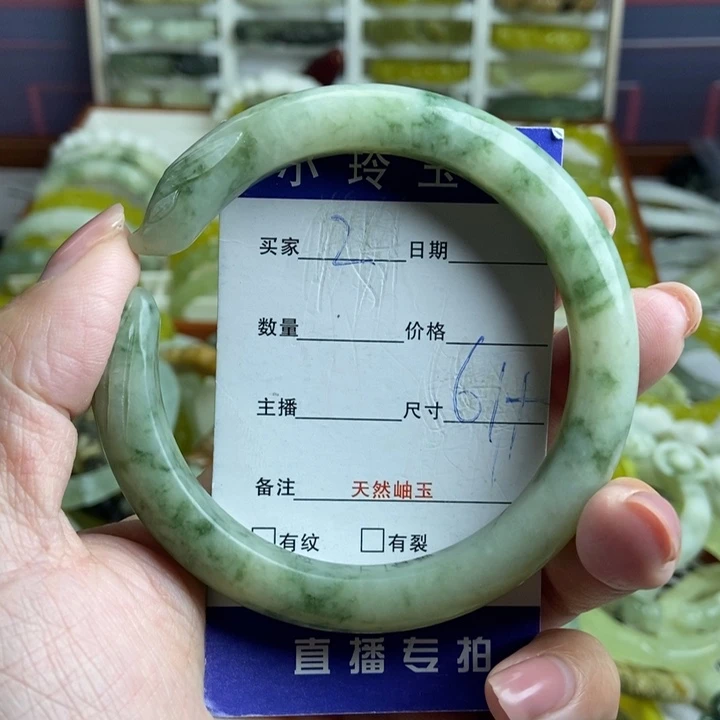 小玲玉
买家 2 日期
数量 价格
主播 尺寸 61+
备注 天然岫玉
□有纹 □有裂
直播专拍